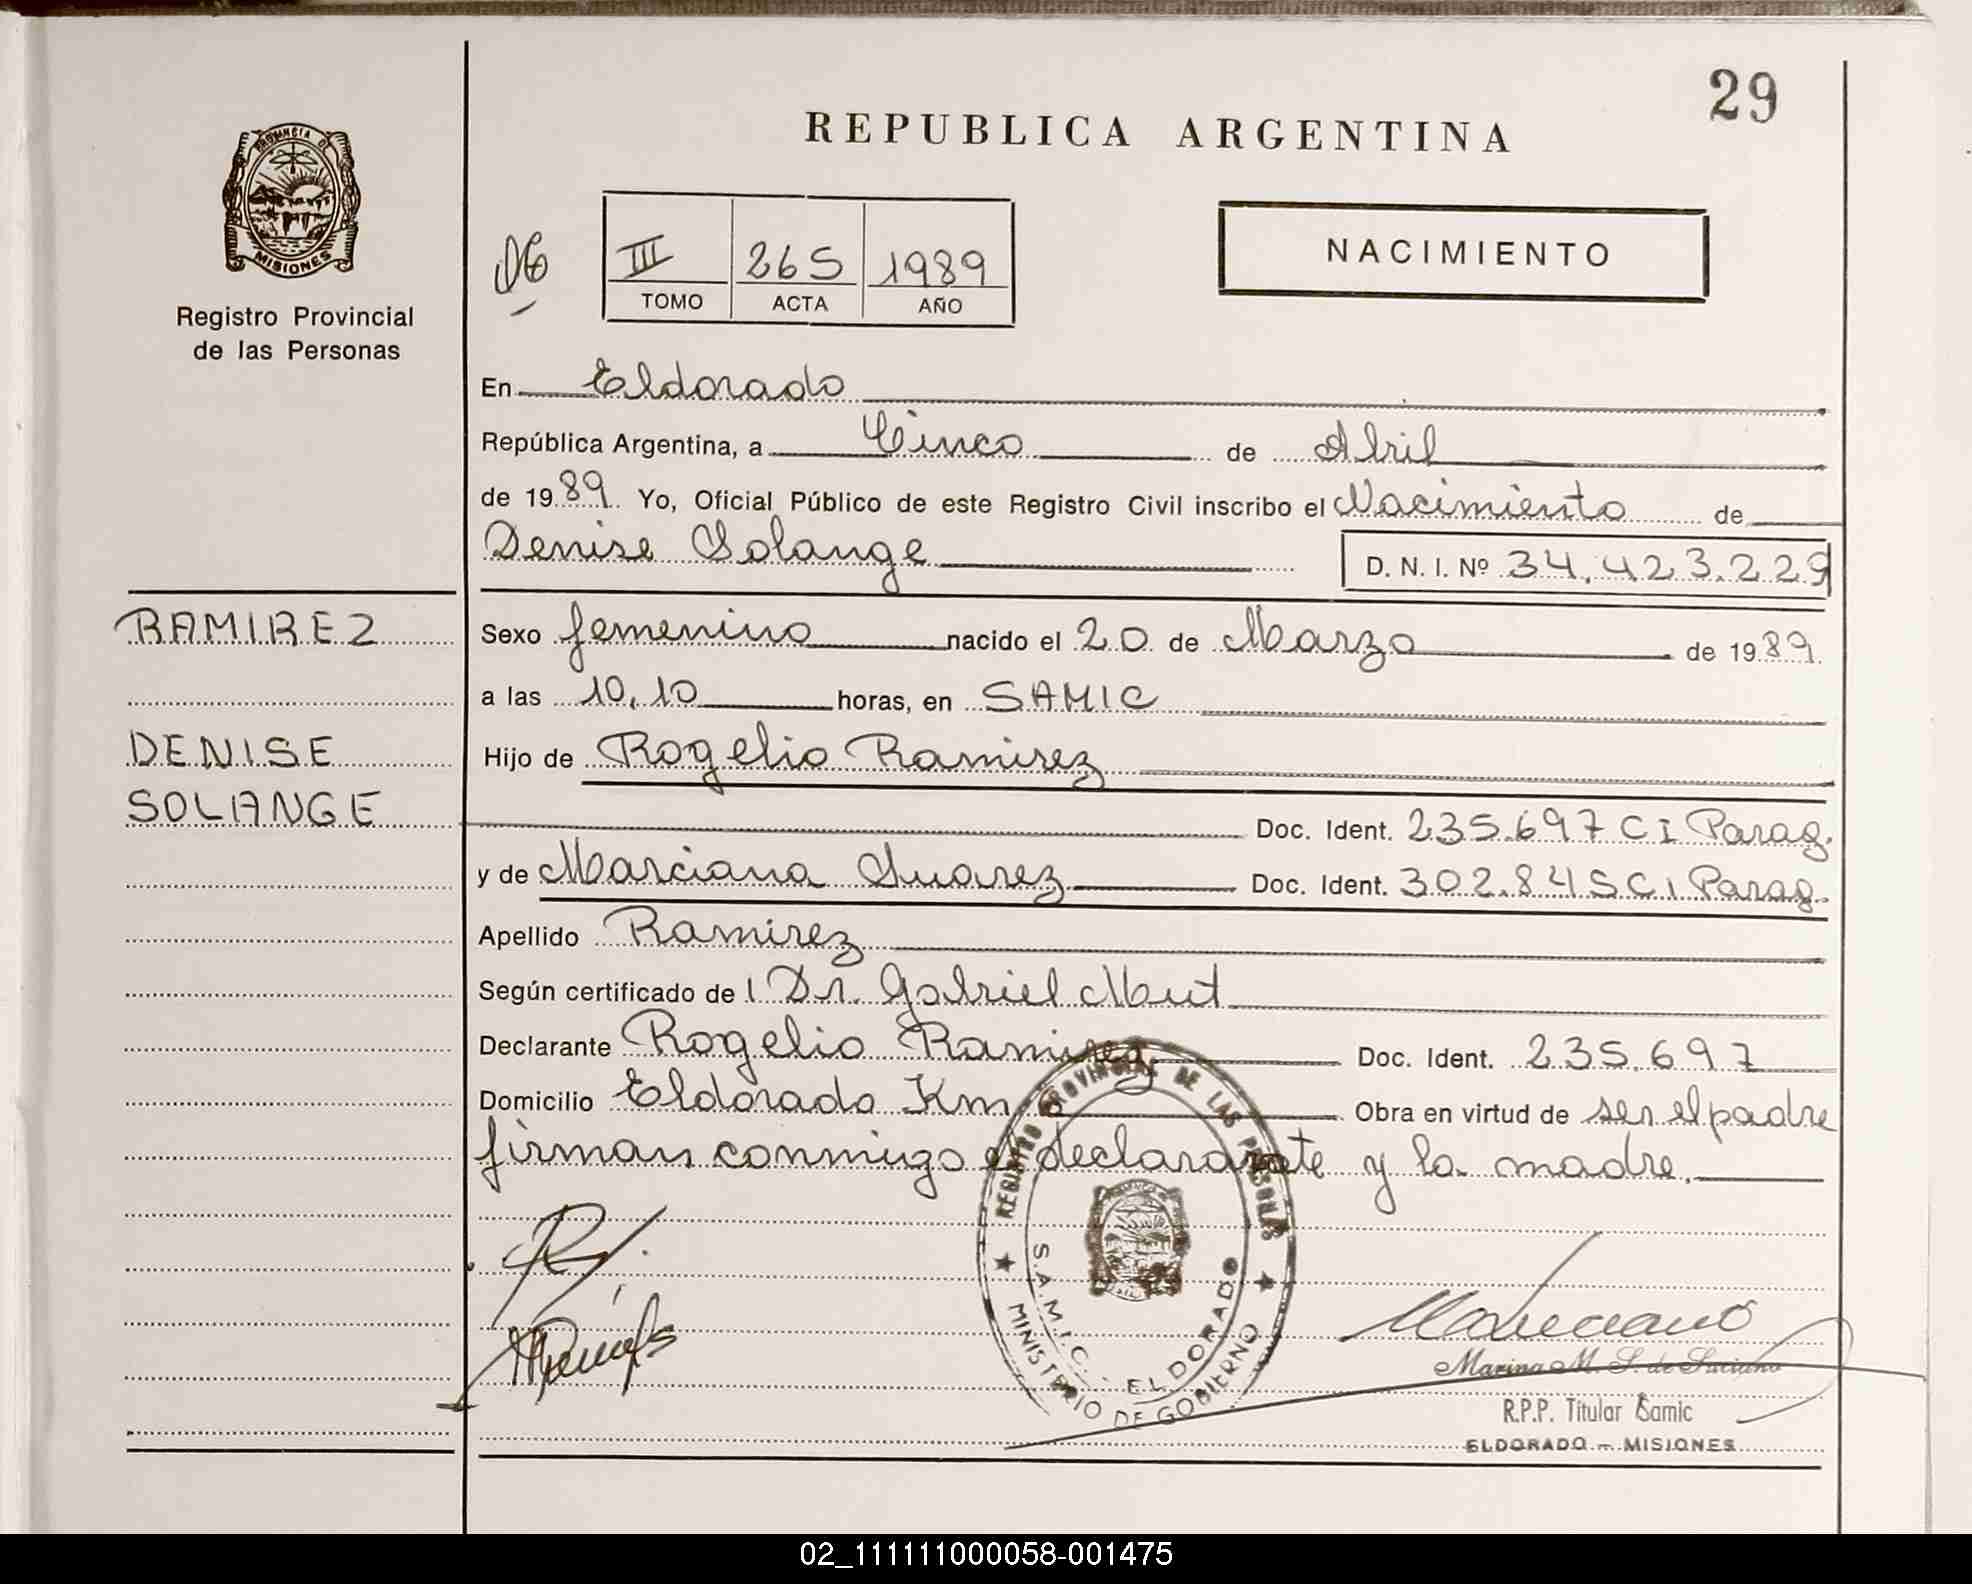 29
REPUBLICA ARGENTINA
PROVINCIA DE
MISIONES
Registro Provincial
de las Personas
III 265 1989
TOMO ACTA AÑO
NACIMIENTO
En Eldorado
República Argentina, a Cinco de Abril
de 1989. Yo, Oficial Público de este Registro Civil inscribo el Nacimiento de
Denise Solange D. N. I. Nº 34.423.229
RAMIREZ
Sexo femenino nacido el 20 de Marzo de 1989.
a las 10,10 horas, en SAMIC
DENISE
Hijo de Rogelio Ramirez
SOLANGE
Doc. Ident. 235.697 C I Parag.
y de Marciana Suarez Doc. Ident. 302.845 C I Parag.
Apellido Ramirez
Según certificado de Dr. Gabriel Mut
Declarante Rogelio Ramirez Doc. Ident. 235.697
Domicilio Eldorado Km Obra en virtud de ser el padre
firman conmigo el declarante y la madre.
REGISTRO PROVINCIAL DE LAS PERSONAS
S.A.M.I.C. ELDORADO
MINISTERIO DE GOBIERNO
Marina M. S. de Luciano
R.P.P. Titular Samic
ELDORADO - MISIONES
02_111111000058-001475